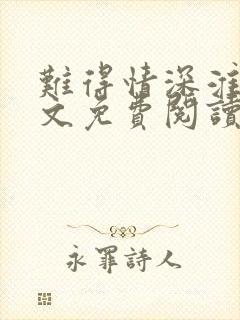 難得情深淮
文免費閱讀
永罪詩人